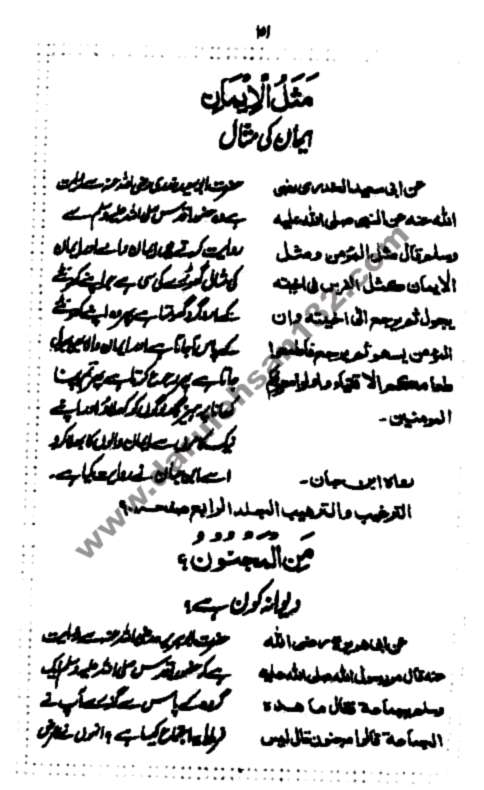 ۱۵۱
مَثَلُ الْاِیْمَانِ
ایمان کی مثال
عن ابی سعید الخدری رضی
الله عنه عن النبی صلی الله علیه
وسلم قال مثل المؤمن ومثل
الایمان کمثل الفرس فی اخیته
یجول ثم یرجع الی اخیته وان
المؤمن یسهو ثم یرجع فاطعموا
طعامکم الاتقیاء واولوا معروفکم
المؤمنین۔
رواه ابن حبان۔
حضرت ابی سعید خدری رضی اللہ عنہ سے روایت
ہے وہ حضور اقدس صلی اللہ علیہ وسلم سے
روایت کرتے ہیں ایمان والے اور ایمان
کی مثال گھوڑے کی سی ہے جو اپنے کھونٹے
کے ارد گرد گھومتا ہے پھر وہ اپنے کھونٹے
کے پاس آ جاتا ہے اور ایمان والا بھی بھول
جاتا ہے پھر رجوع کرتا ہے پس تم اپنا
کھانا پرہیزگار لوگوں کو کھلاؤ اور اپنے
نیک کاموں سے ایمان والوں کا بھلا کرو
اسے ابن حبان نے روایت کیا ہے۔
الترغیب والترهیب المجلد الرابع صفحہ ۹۰
مَنِ الْمَجْنُونُ ؟
دیوانہ کون ہے ؟
عن ابی هریرة رضی الله
عنه قال مر رسول الله صلی الله علیه
وسلم بجماعة فقال ما هذه
الجماعة قالوا مجنون قال لیس
حضرت ابوہریرہ رضی اللہ عنہ سے روایت
ہے کہ حضور اقدس صلی اللہ علیہ وسلم ایک
گروہ کے پاس سے گذرے آپ نے
فرمایا یہ اجتماع کیسا ہے ؟ انہوں نے عرض
www.darulehsan182.com